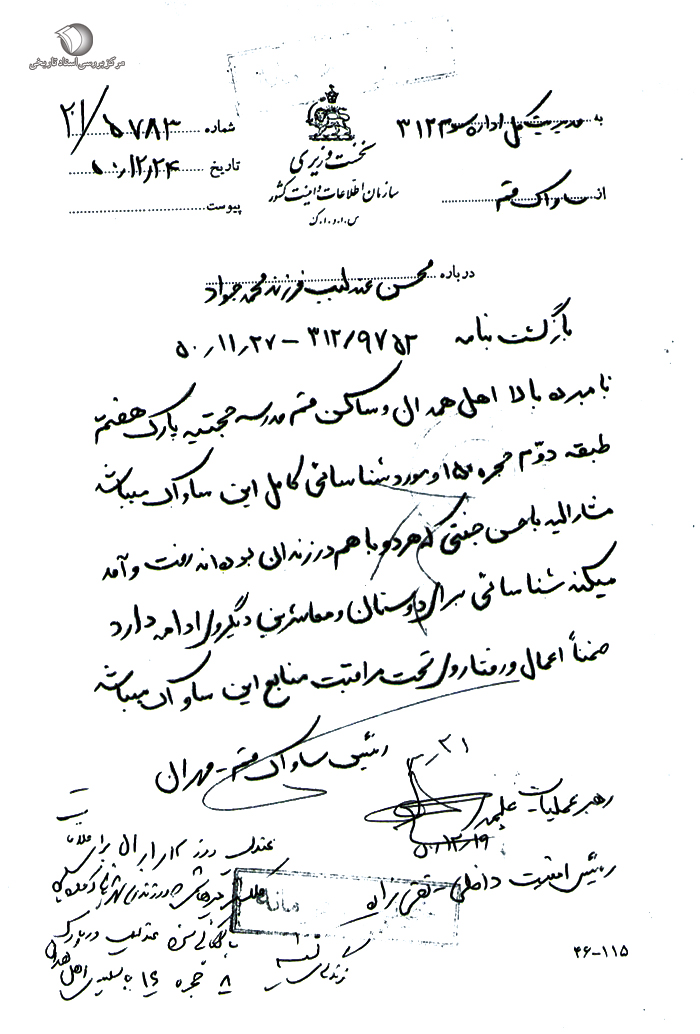 مرکز بررسی اسناد تاریخی
به مدیریت کل اداره سوم ۳۱۲
از ساواک قم
نخست وزیری
سازمان اطلاعات و امنیت کشور
س.ا.و.ا.ک
شماره ۲۱/۵۷۸۳
تاریخ ۵۰/۱۲/۲۴
پیوست
درباره محسن عندلیب فرزند محمدجواد
بازگشت بنامه ۳۱۲/۹۷۵۲ - ۵۰/۱۱/۲۷
نامبرده بالا اهل همدان و ساکن قم مدرسه حجتیه پارک هفتم
طبقه دوم حجره ۱۵۰ و مورد شناسائی کامل این ساواک میباشد
مشارالیه با حسن جنتی که هر دو با هم در زندان بوده‌اند رفت و آمد
میکند شناسائی برای دوستان و معاشرین دیگر وی ادامه دارد
ضمناً اعمال و رفتار وی تحت مراقبت منابع این ساواک میباشد
رئیس ساواک قم - مهران
رهبر عملیات
۵۰/۱۲/۱۹
رئیس امنیت داخلی -
عندلیب روز برای ملاقات
عندلیب در پارک
۸ حجره ۱۶ اهل همدان
۴۶-۱۱۵